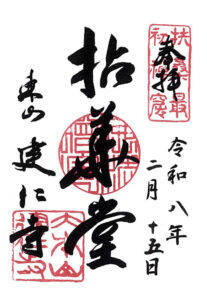 奉拝
扶桑最
初禅窟
令和八年
二月
十五日
拈華堂
東山
建仁寺